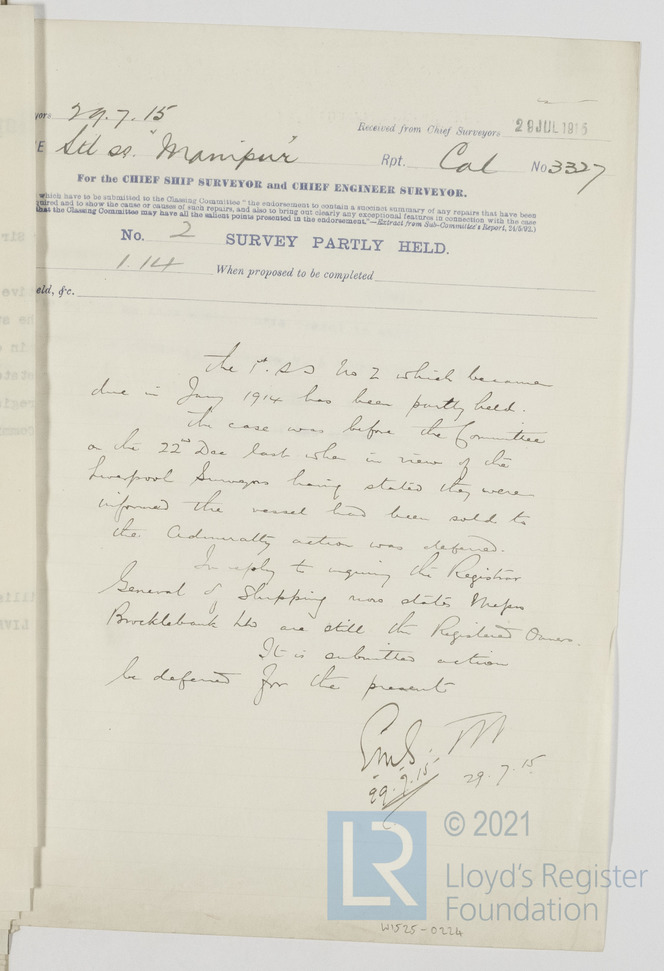 yors 29.7.15
Received from Chief Surveyors 29 JUL 1915
E Stl ss. "Manipur" Rpt. Cal No 3327
For the CHIEF SHIP SURVEYOR and CHIEF ENGINEER SURVEYOR.
which have to be submitted to the Classing Committee "the endorsement to contain a succinct summary of any repairs that have been
quired and to show the cause or causes of such repairs, and also to bring out clearly any exceptional features in connection with the case
that the Classing Committee may have all the salient points presented in the endorsement."—Extract from Sub-Committee's Report, 24/5/92.)
No. 2 SURVEY PARTLY HELD.
1.14 When proposed to be completed
eld, &c.
The 1st SS No 2 which became
due in Jany 1914 has been partly held.
The case was before the Committee
on the 22nd Dec last when in view of the
Liverpool Surveyors having stated they were
informed the vessel had been sold to
the Admiralty action was deferred.
In reply to inquiry the Registrar
General of Shipping now states Messrs
Brocklebank Ltd are still the Registered Owners.
It is submitted action
be deferred for the present
29.7.15 29.7.15
LR
© 2021
Lloyd's Register
Foundation
W1525-0224